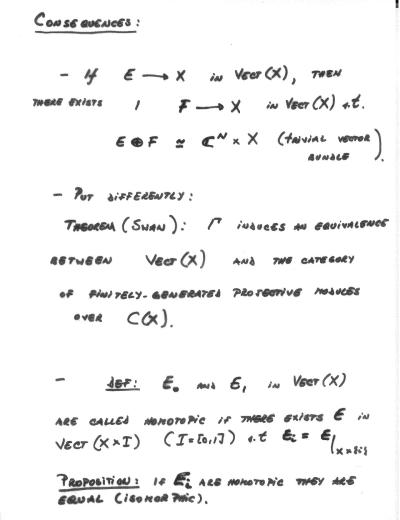 CONSEQUENCES:
- If E → X in VECT(X), THEN
THERE EXISTS 1 F → X in VECT(X) s.t.
E ⊕ F ≃ ℂᴺ × X (trivial vector
BUNDLE).
- PUT DIFFERENTLY:
THEOREM (SWAN): Γ INDUCES AN EQUIVALENCE
BETWEEN VECT(X) AND THE CATEGORY
OF FINITELY-GENERATED PROJECTIVE MODULES
OVER C(X).
- DEF: E₀ AND E₁ in VECT(X)
ARE CALLED HOMOTOPIC IF THERE EXISTS E in
VECT(X×I) (I=[0,1]) s.t Eᵢ = E|X×{i}
PROPOSITION: IF Eᵢ ARE HOMOTOPIC THEY ARE
EQUAL (ISOMORPHIC).